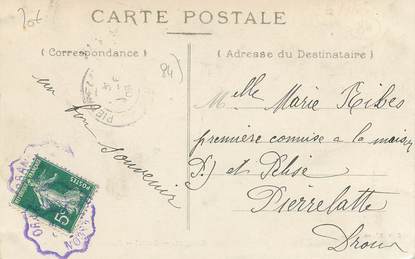 CARTE POSTALE
( Correspondance )
( Adresse du Destinataire )
84)
un fin souvenir
Mlle Marie Ribes
première commise a la maison
et Pélise
Pierrelatte
Drome
POSTES
5c
ORAN